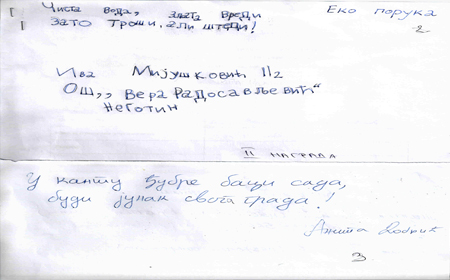 Чиста вода, злата вреди Еко порука
Зато троши, али штеди! 2
Ива Мијушковић II2
ОШ „Вера Радосављевић“
Неготин
II НАГРАДА
У канту ђубре баци сада,
буди јунак свога града!
Анита
3